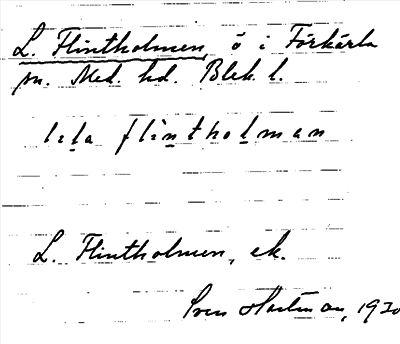 L. Flintholmen, ö i Förkärla
sn. Med. hd. Blek. l.
lila flintholman
L. Flintholmen, ek.
Sven Hartman, 1930